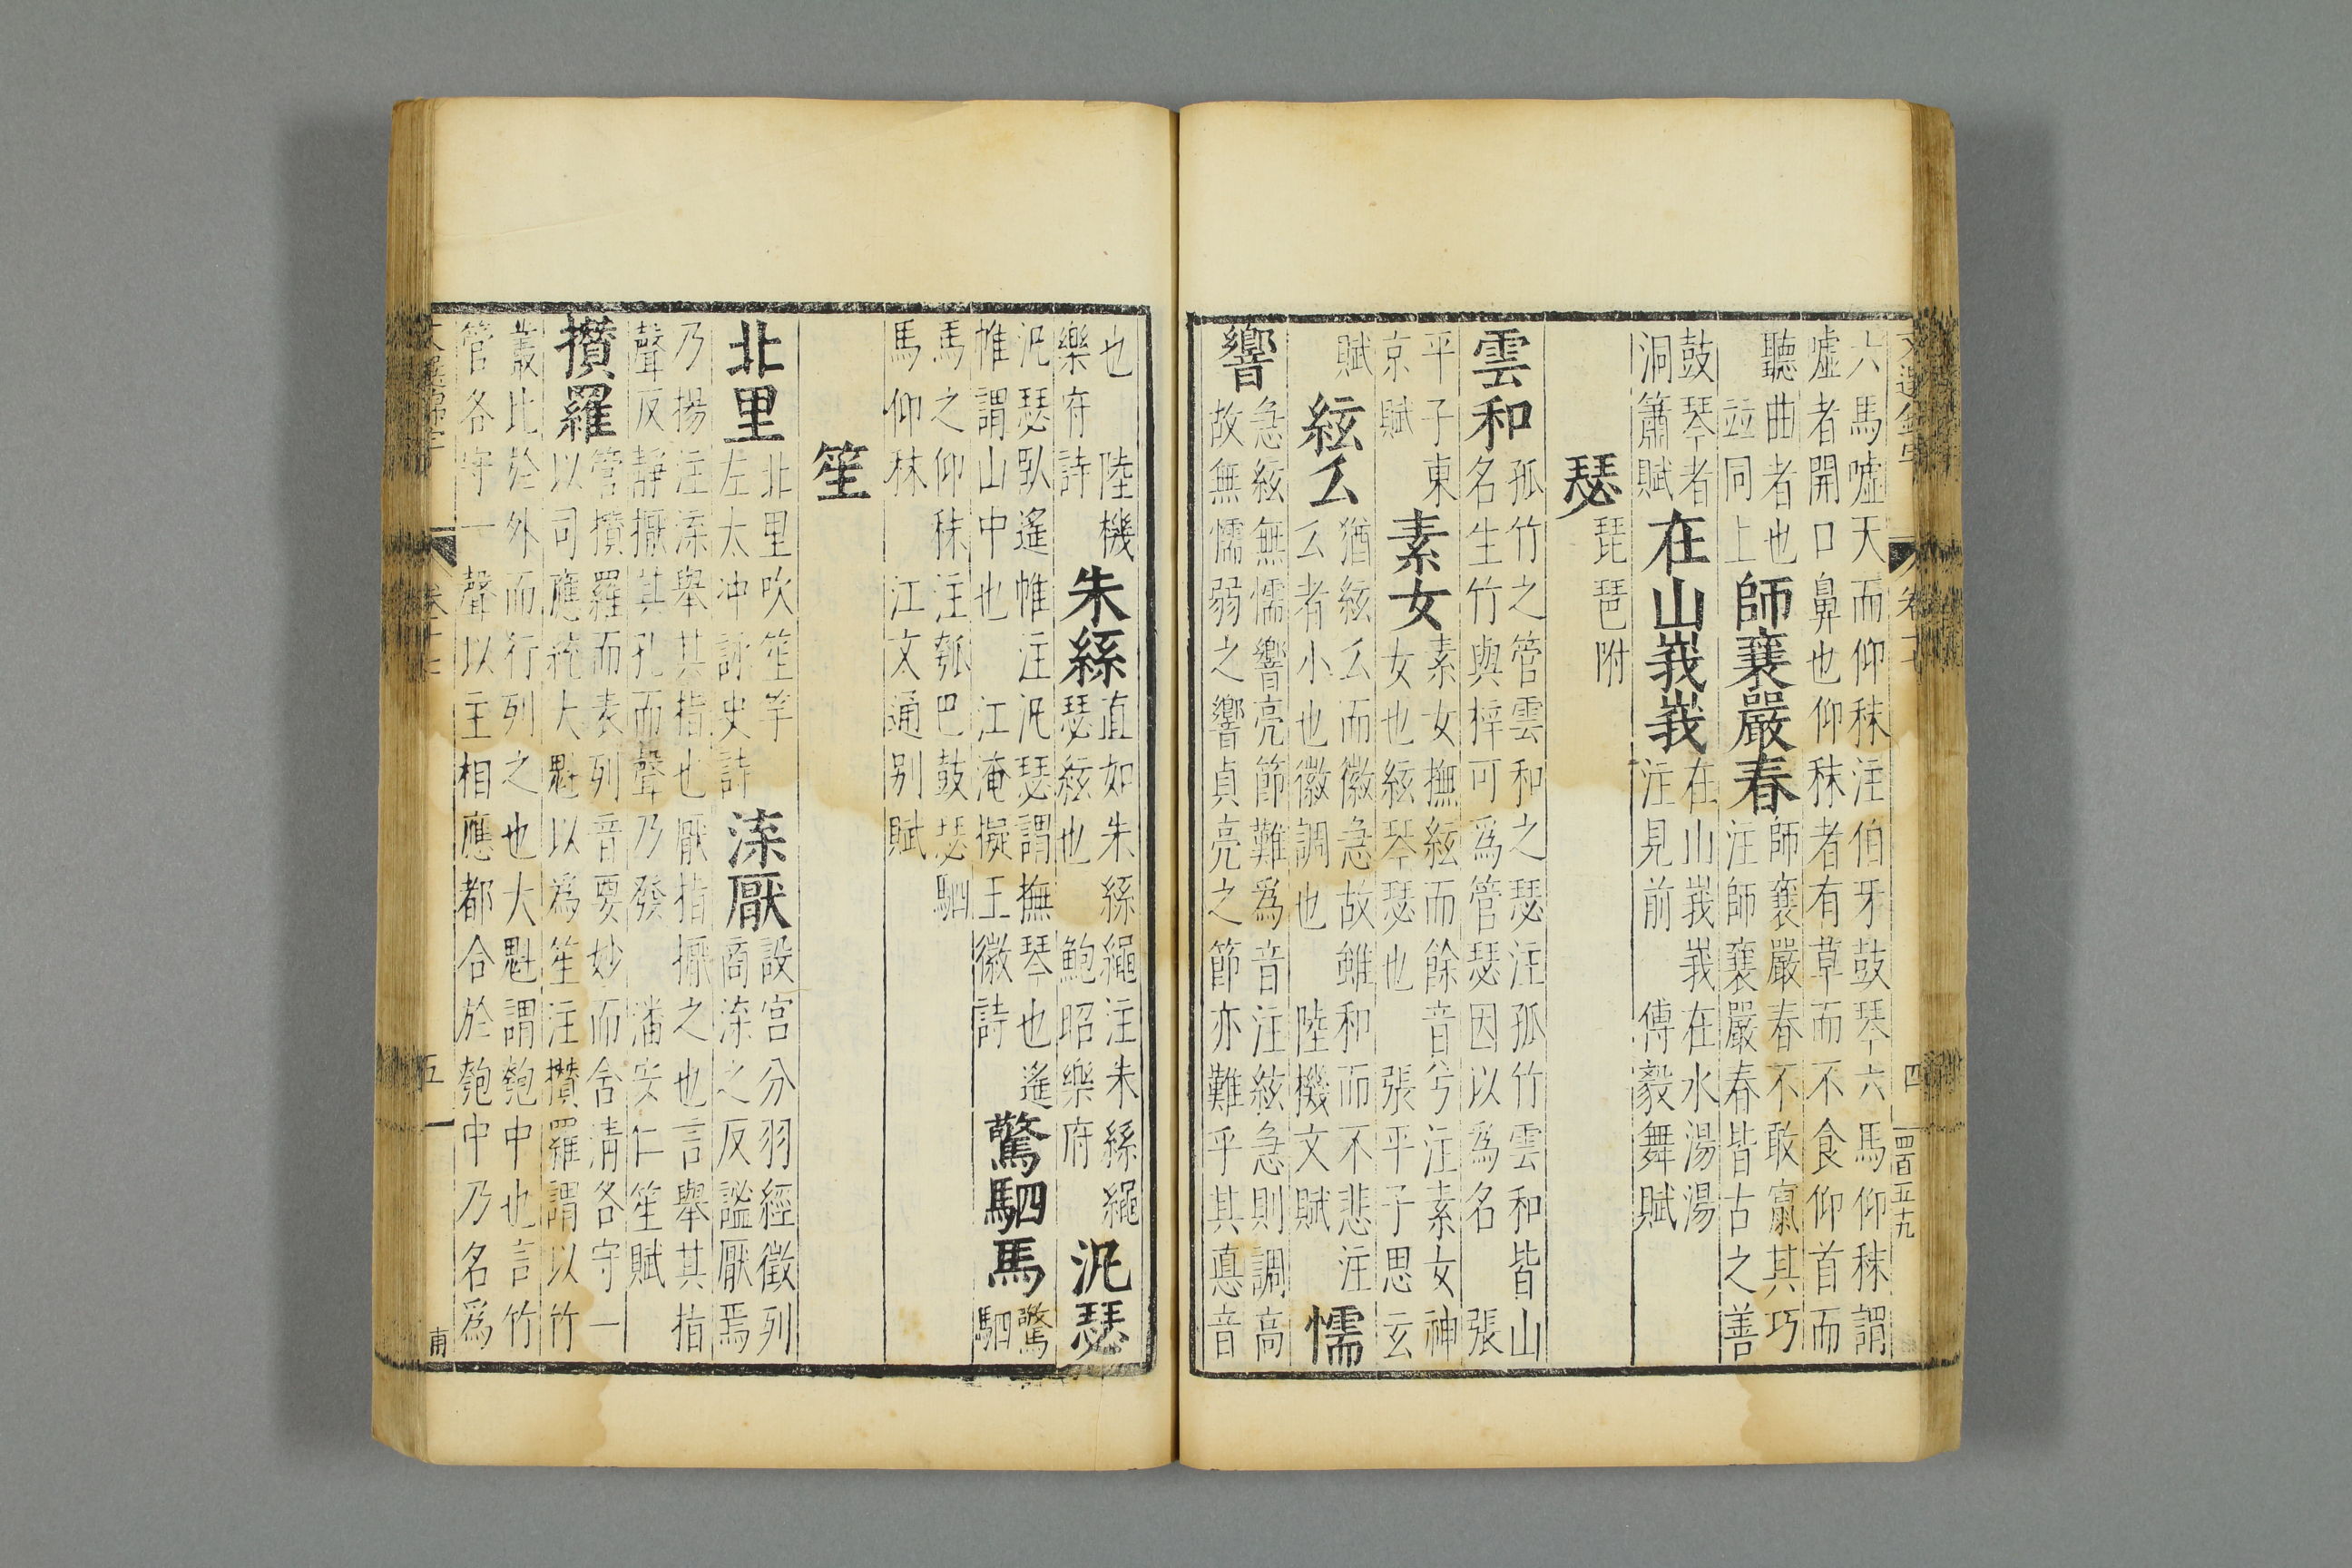 六馬噓天而仰秣注伯牙鼓琴六馬仰秣謂
噓者開口鼻也仰秣者有草而不食仰首而
聽曲者也
竝同上
師襄嚴春
師襄嚴春不敢竄其巧
注師襄嚴春皆古之善
鼓琴者
洞簫賦
在山峩峩
在山峩峩在水湯湯
注見前 傅毅舞賦
瑟
琵琶附
雲和
孤竹之管雲和之瑟注孤竹雲和皆山
名生竹與梓可爲管瑟因以爲名 張
平子東
京賦
素女
素女撫絃而餘音兮注素女神
女也絃琴瑟也 張平子思玄
賦
絃么
猶絃么而徽急故雖和而不悲注
么者小也徽調也 陸機文賦
懦
響
急絃無懦響亮節難爲音注絃急則調高
故無懦弱之響貞亮之節亦難乎其音
四
四百五九
也 陸機
樂府詩
朱絲
直如朱絲繩注朱絲繩
瑟絃也 鮑昭樂府
汎瑟
汎瑟臥遙帷注汎瑟謂撫琴也遙
帷謂山中也 江淹擬王徽詩
驚駟馬
驚駟
馬之仰秣注瓠巴鼓瑟駟
馬仰秣 江文通別賦
笙
北里
北里吹笙竽
左太冲詠史詩
濼厭
設宮分羽經徵列
商濼之反謐厭焉
乃揚注濼舉其指也厭指擫之也言舉其指
聲反靜擫其孔而聲乃發 潘安仁笙賦
攢羅
管攢羅而表列音要妙而含清各守一
以司應統大魁以爲笙注攢羅謂以竹
叢比於外而行列之也大魁謂匏中也言竹
管各守一聲以主相應都合於匏中乃名爲
五